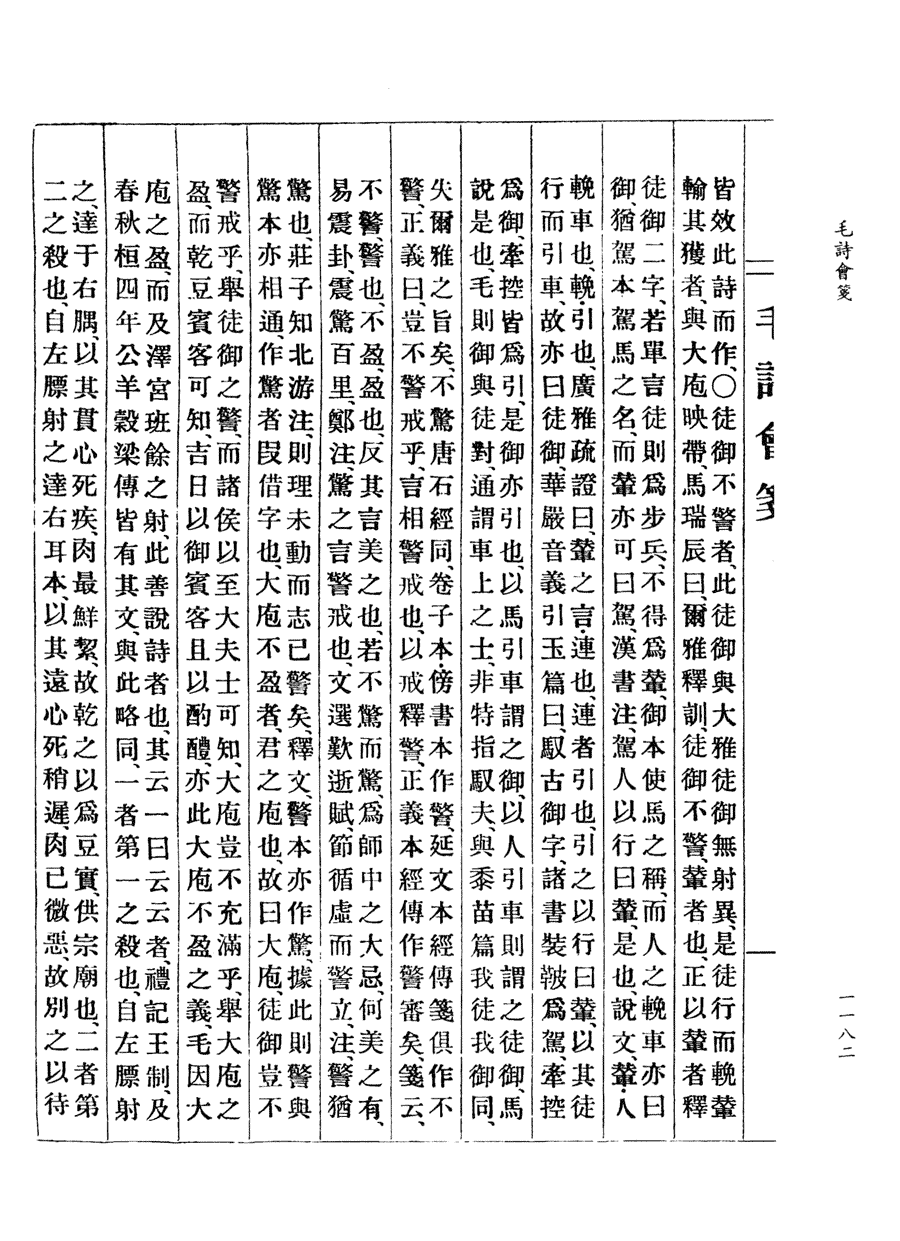 毛詩會箋
一一八二
毛詩會箋
皆效此詩而作、〇徒御不警者、此徒御與大雅徒御無射異、是徒行而輓輦
輸其獲者、與大庖映帶、馬瑞辰曰、爾雅釋訓、徒御不警、輦者也、正以輦者釋
徒御二字、若單言徒則爲步兵、不得爲輦、御本使馬之稱、而人之輓車亦曰
御、猶駕本駕馬之名、而輦亦可曰駕、漢書注、駕人以行曰輦、是也、說文、輦、人
輓車也、輓、引也、廣雅疏證曰、輦之言連也、連者引也、引之以行曰輦、以其徒
行而引車、故亦曰徒御、華嚴音義引玉篇曰、馭古御字、諸書裝鞁爲駕、牽控
爲御、牽控皆爲引、是御亦引也、以馬引車謂之御、以人引車則謂之徒御、馬
說是也、毛則御與徒對、通謂車上之士、非特指馭夫、與黍苗篇我徒我御同、
失爾雅之旨矣、不驚唐石經同、卷子本傍書本作警、延文本經傳箋俱作不
警、正義曰、豈不警戒乎、言相警戒也、以戒釋警、正義本經傳作警審矣、箋云、
不警、警也、不盈、盈也、反其言美之也、若不驚而驚、爲師中之大忌、何美之有、
易震卦、震驚百里、鄭注、驚之言警戒也、文選歎逝賦、節循虛而警立、注、警猶
驚也、莊子知北游注、則理未動而志已警矣、釋文、警本亦作驚、據此則警與
驚本亦相通、作驚者叚借字也、大庖不盈者、君之庖也、故曰大庖、徒御豈不
警戒乎、舉徒御之警、而諸侯以至大夫士可知、大庖豈不充滿乎、舉大庖之
盈、而乾豆賓客可知、吉日以御賓客且以酌醴、亦此大庖不盈之義、毛因大
庖之盈、而及澤宮班餘之射、此善說詩者也、其云一曰云云者、禮記王制、及
春秋桓四年公羊穀梁傳皆有其文、與此略同、一者第一之殺也、自左膘射
之、達于右腢、以其貫心死疾、肉最鮮絜、故乾之以爲豆實、供宗廟也、二者第
二之殺也、自左膘射之達右耳本、以其遠心死稍遲、肉已微惡、故別之以待